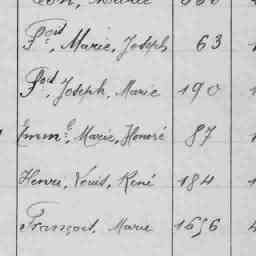 Léon, Marie
Fçois, Marie, Joseph 63
Fçois, Joseph, Marie 190
Emm.le, Marie, Honoré 87
Henri, Louis, René 184
François, Marie 1656